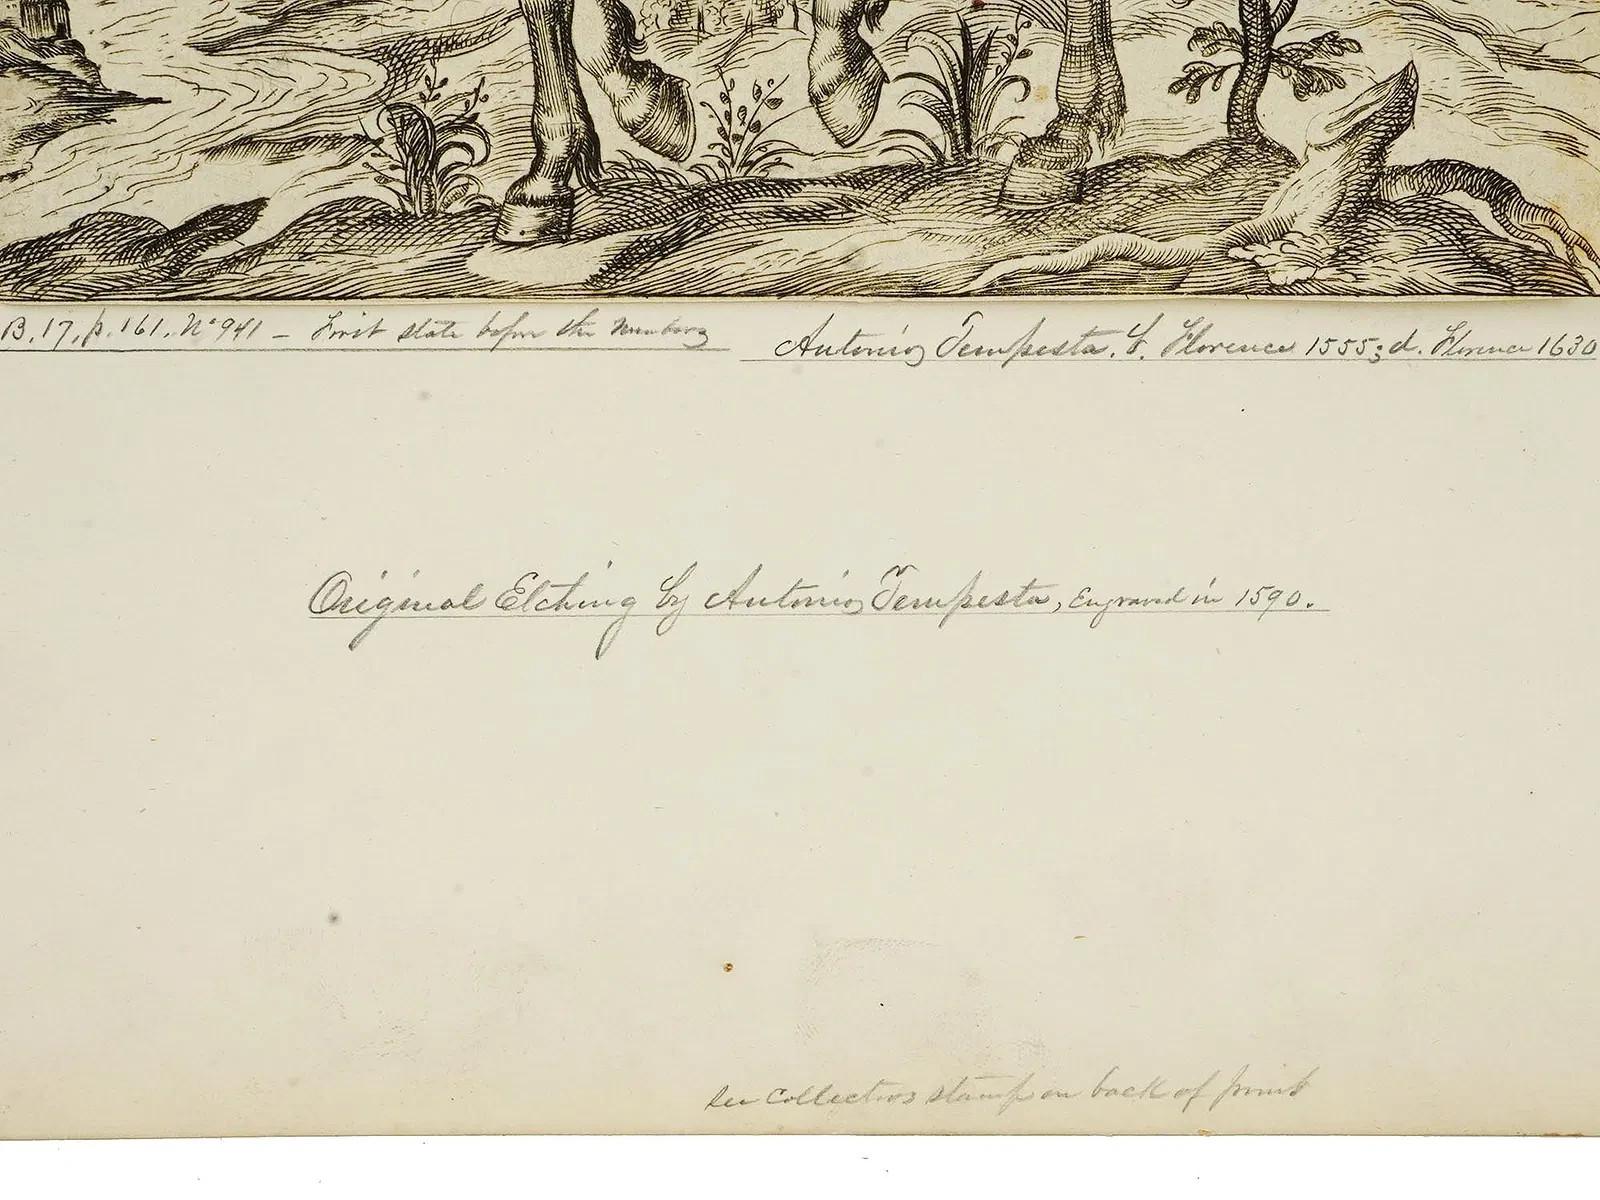 B. 17, p. 161. No 941 – First state before the numbers
Antonio Tempesta. b. Florence 1555; d. Florence 1630
Original Etching by Antonio Tempesta, Engraved in 1590.
See Collectors stamp on back of print